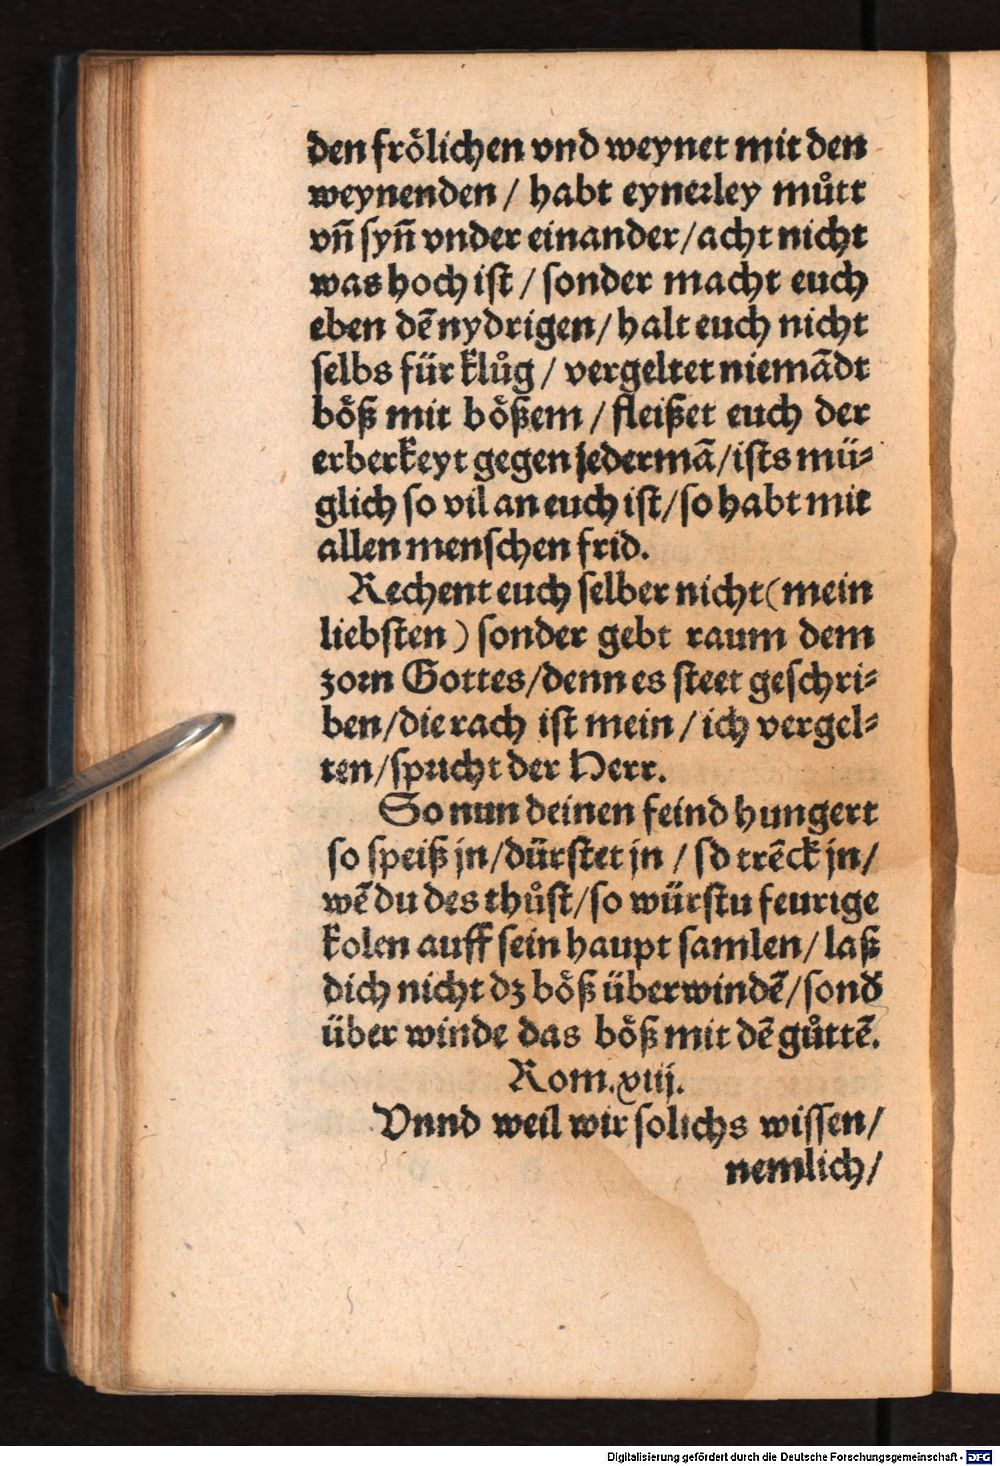 den froͤlichen vnd weynet mit den
weynenden / habt eynerley muͦtt
vn̄ ſyn̄ vnder einander/acht nicht
was hoch iſt / ſonder macht euch
eben dē nydrigen/ halt euch nicht
ſelbs für kluͦg / vergeltet niemādt
boͤß mit boͤßem / fleißet euch der
erberkeyt gegen jedermā/iſts mü⸗
glich ſo vil an euch iſt/ſo habt mit
allen menſchen frid.
Rechent euch ſelber nicht(mein
liebſten) ſonder gebt raum dem
zorn Gottes/denn es ſteet geſchri⸗
ben/die rach iſt mein / ich vergel⸗
ten/ſpricht der Herr.
So nun deinen feind hungert
ſo ſpeiß jn/dürſtet jn / ſo trēck jn/
wē du des thuͦſt/ſo würſtu feurige
kolen auff ſein haupt ſamlen/ laß
dich nicht dz boͤß überwindē/ſond̕
über winde das boͤß mit dē guͦttē.
Rom.xiij.
Vnnd weil wir ſolichs wiſſen/
nemlich/
Digitalisierung gefördert durch die Deutsche Forschungsgemeinschaft - DFG